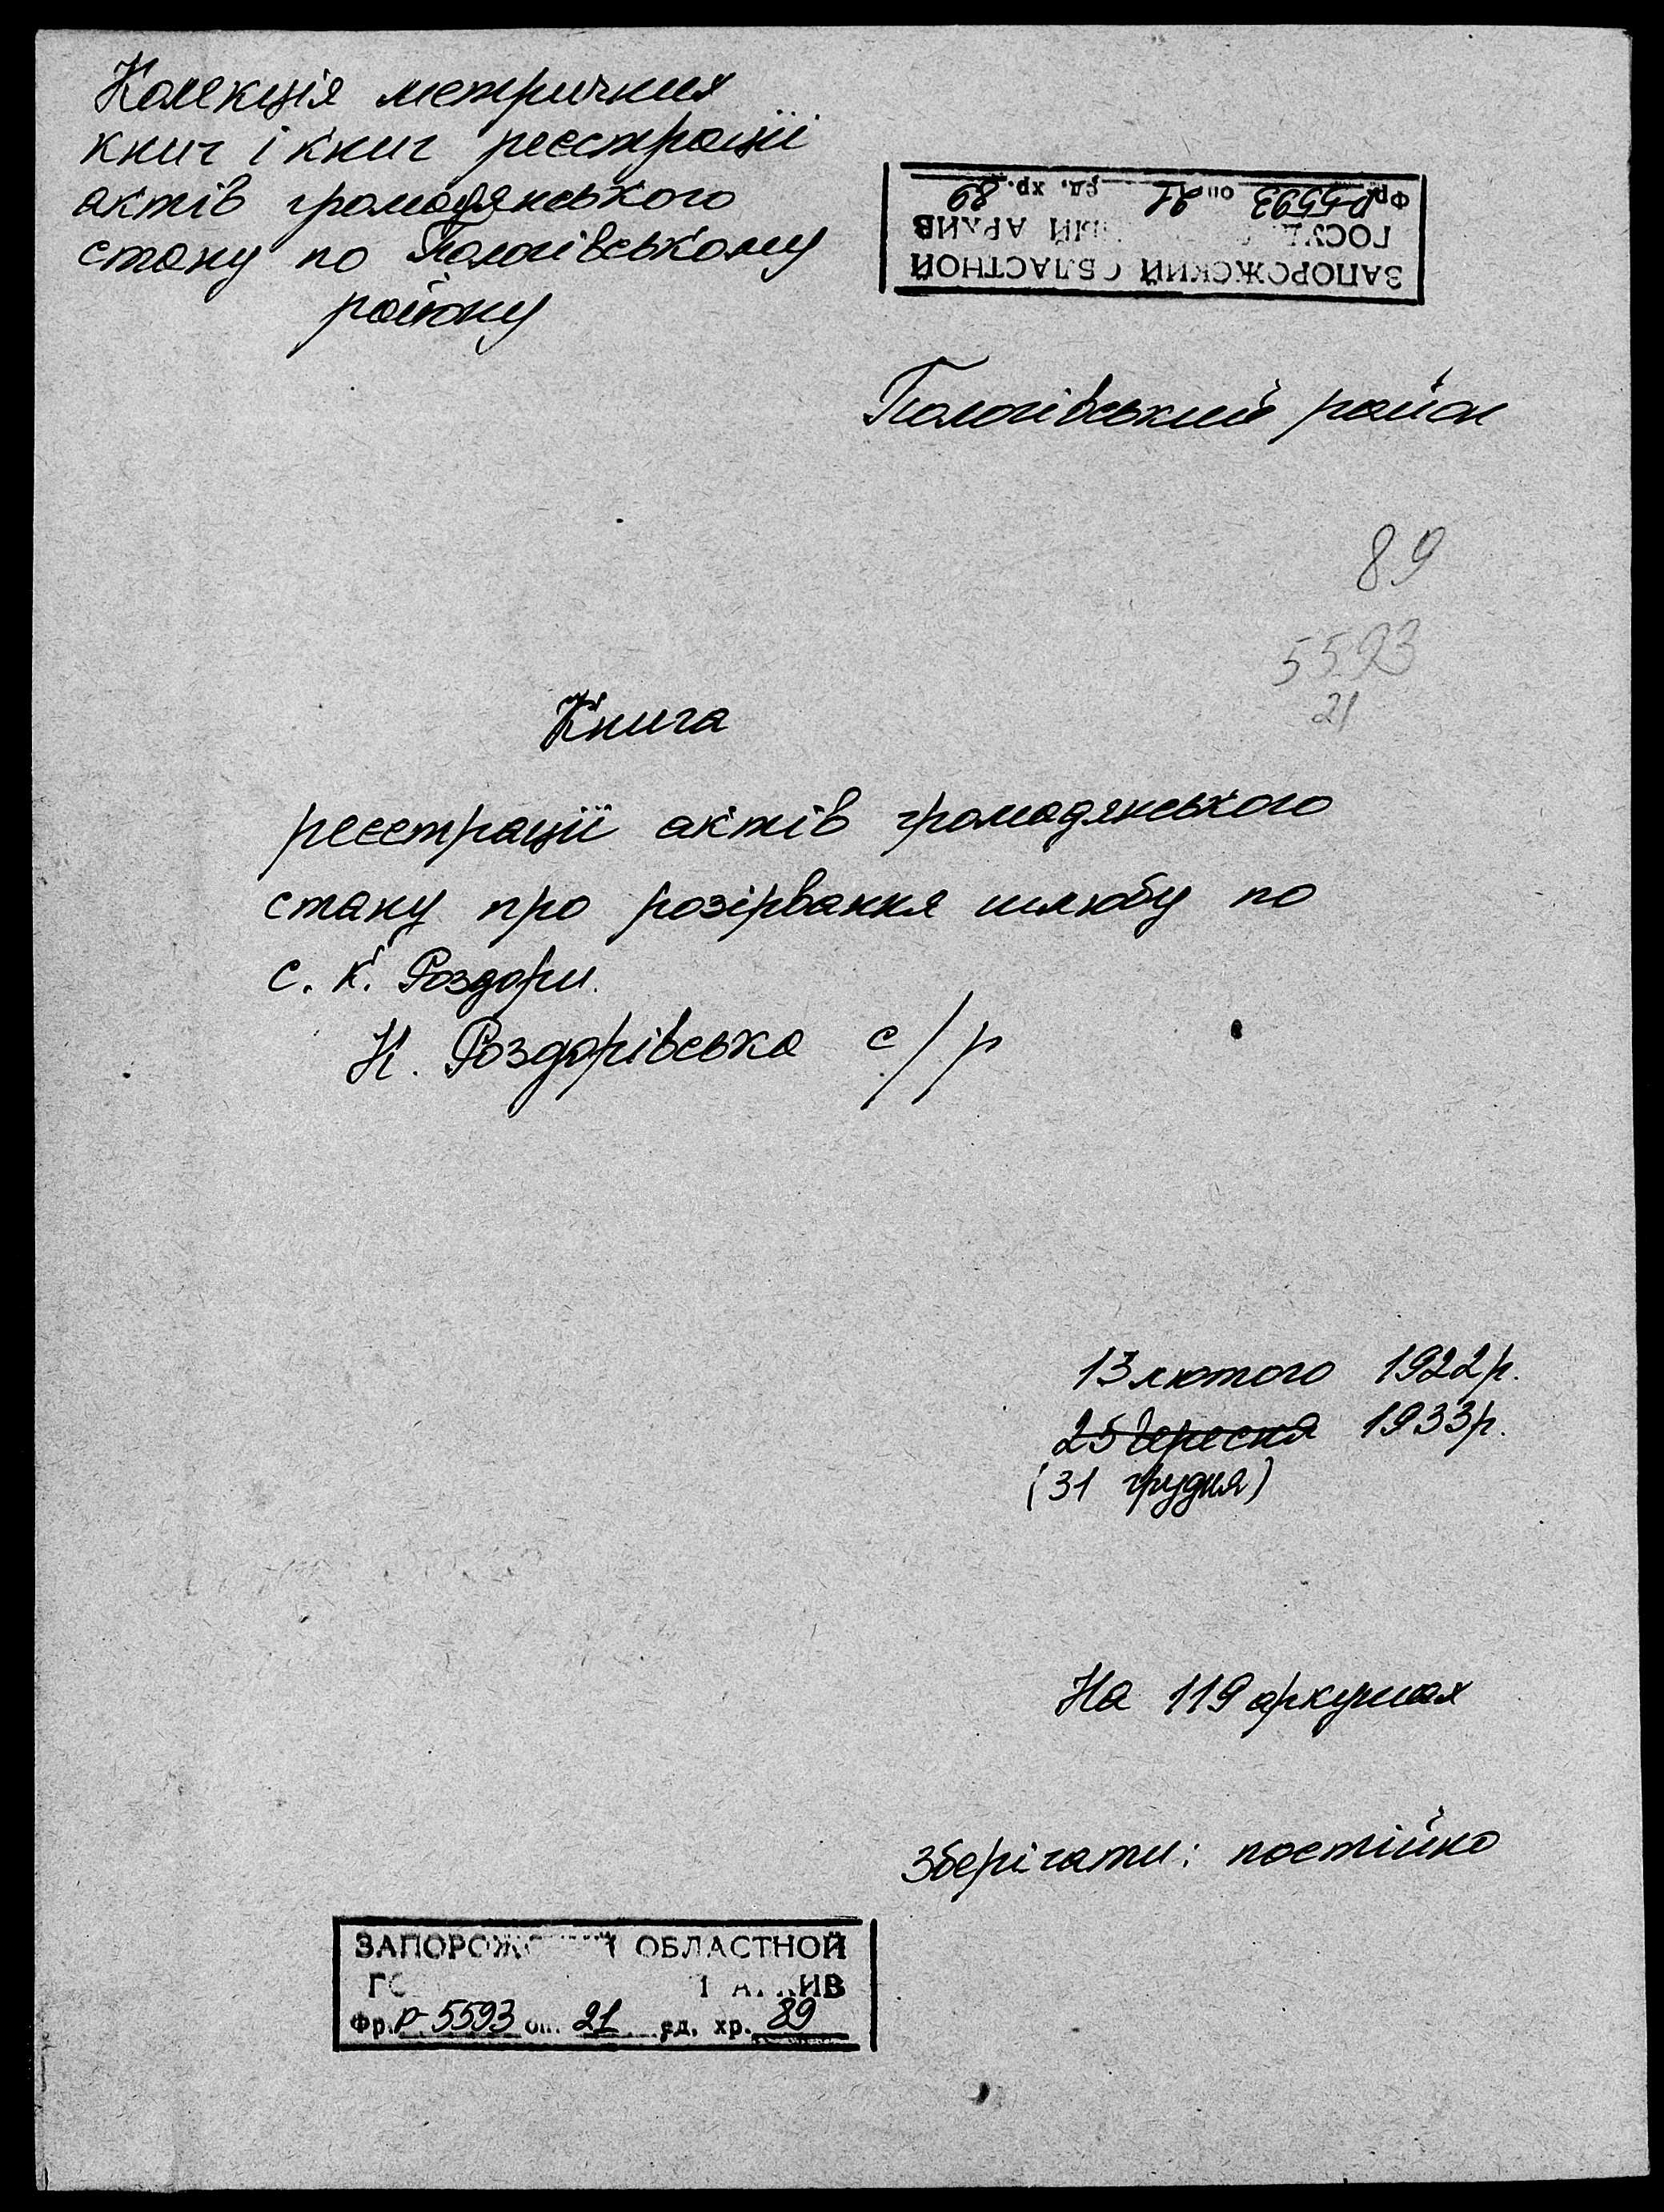 Колекція метричних
книг і книг реєстрації
актів громадянського
стану по Пологівському
району
ЗАПОРОЖСКИЙ ОБЛАСТНОЙ
АРХИВ
Фр. Р-5593 оп. 21 ед. хр. 89
Пологівський район
89
5593
21
Книга
реєстрації актів громадянського
стану про розірвання шлюбу по
с. К. Роздори.
К. Роздорівська с/р
13 лютого 1922 р.
25 вересня 1933 р.
(31 грудня)
На 119 аркушах
Зберігати: постійно
ЗАПОРОЖСКИЙ ОБЛАСТНОЙ
АРХИВ
Фр. Р-5593 оп. 21 ед. хр. 89